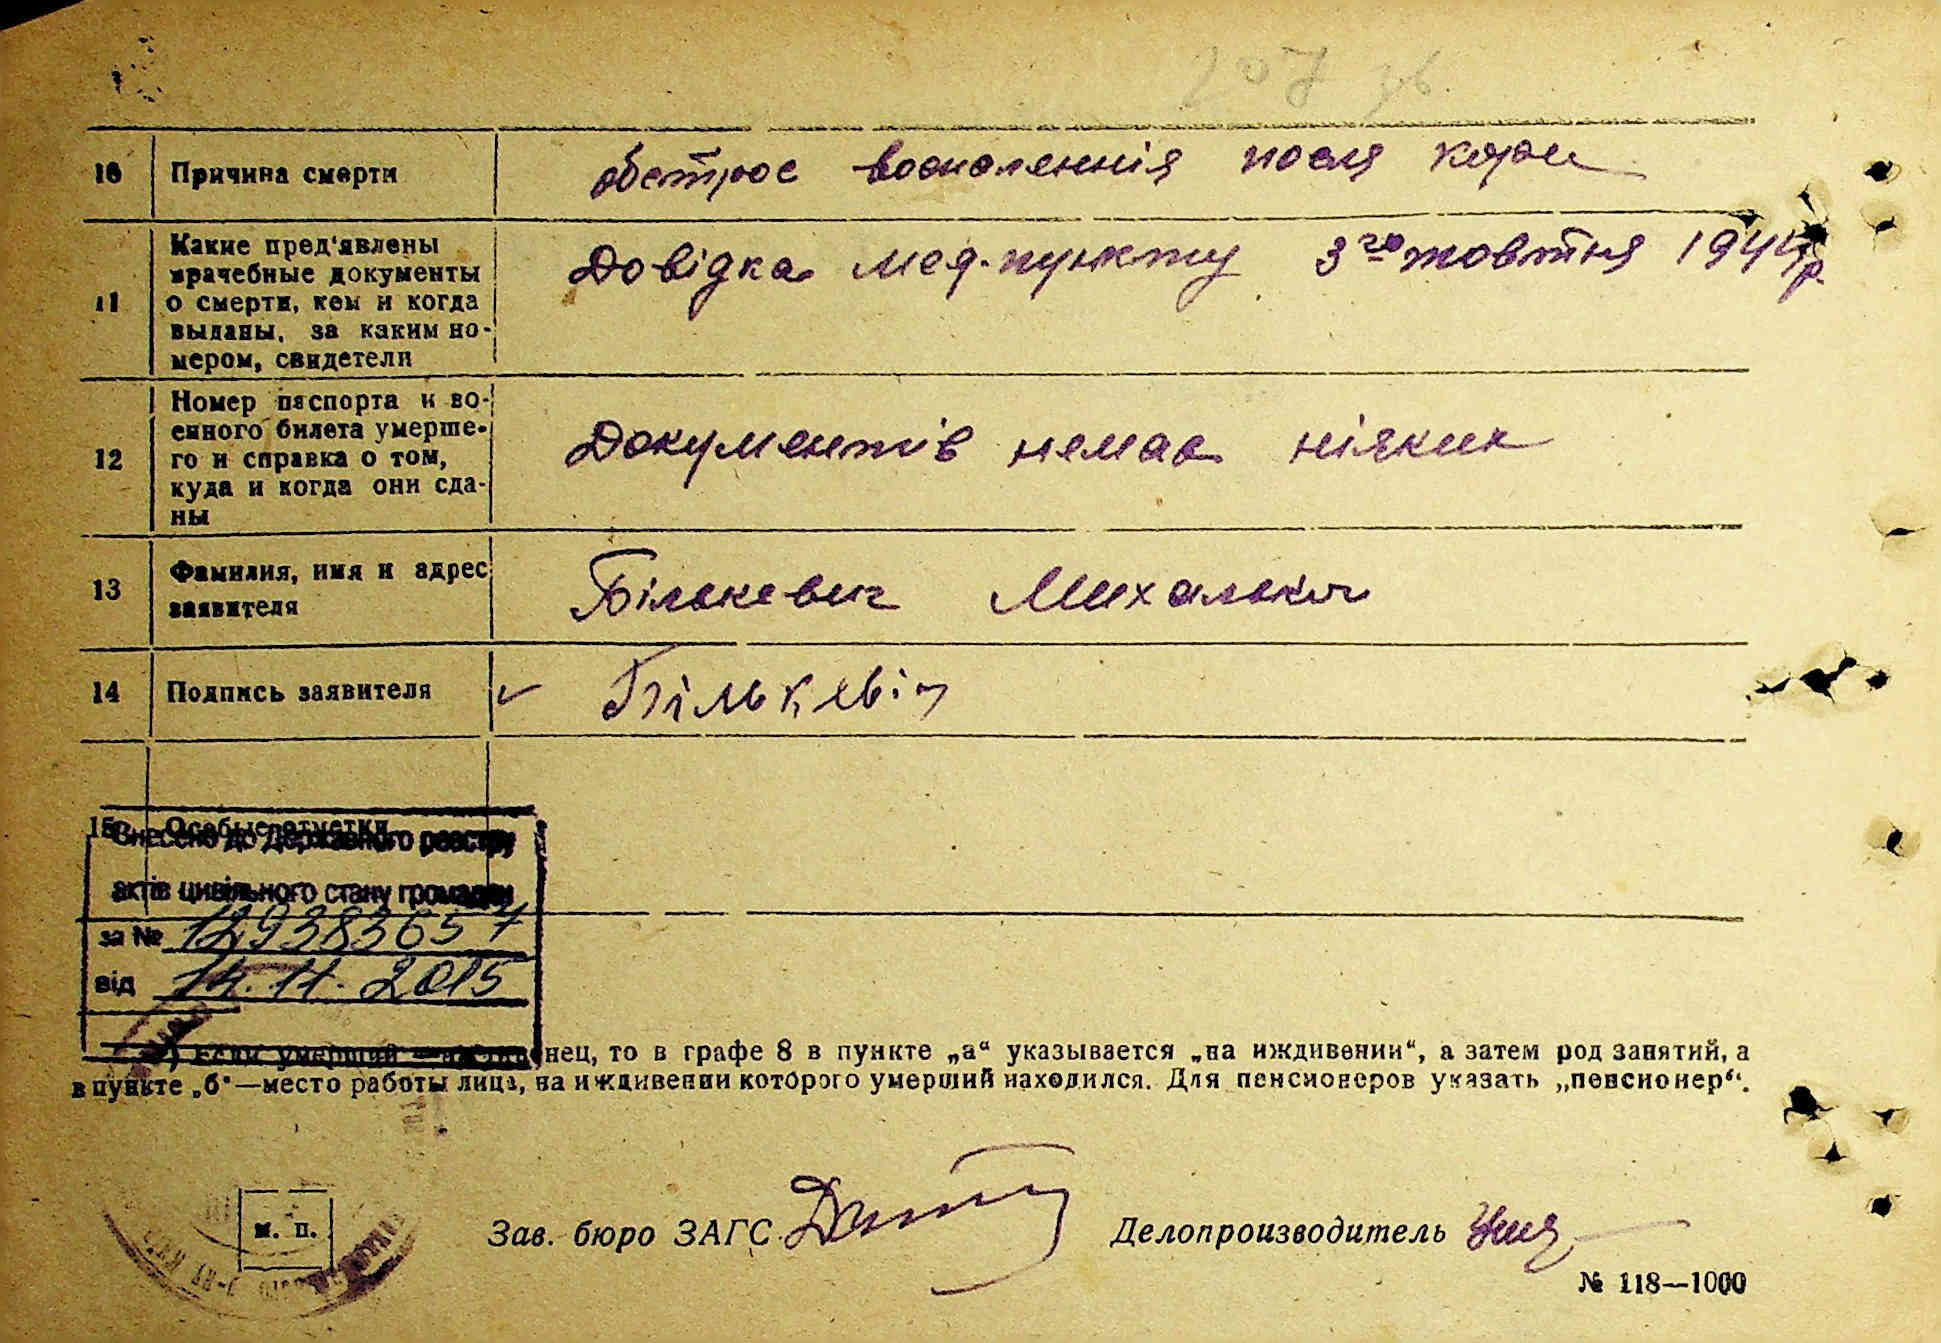 207 зв.
10 Причина смерти обстрое воспаленнія посля кори
11 Какие пред'явлены
врачебные документы
о смерти, кем и когда
выданы, за каким но-
мером, свидетели
Довідка мед. пункту 3го жовтня 1944 р.
12 Номер паспорта и во-
енного билета умерше-
го и справка о том,
куда и когда они сда-
ны
Документів немає ніяких
13 Фамилия, имя и адрес
заявителя
Бількевич Михалько
14 Подпись заявителя Бількевіч
15 Особые отметки
Внесено до Державного реєстру
актів цивільного стану громадян
за № 12938365
від 14.11.2015
*) Если умерший —иждивенец, то в графе 8 в пункте „а“ указывается „на иждивении“, а затем род занятий, а
в пункте „б“—место работы лица, на иждивении которого умерший находился. Для пенсионеров указать „пенсионер“.
м. п.
Зав. бюро ЗАГС
Делопроизводитель
№ 118—1000